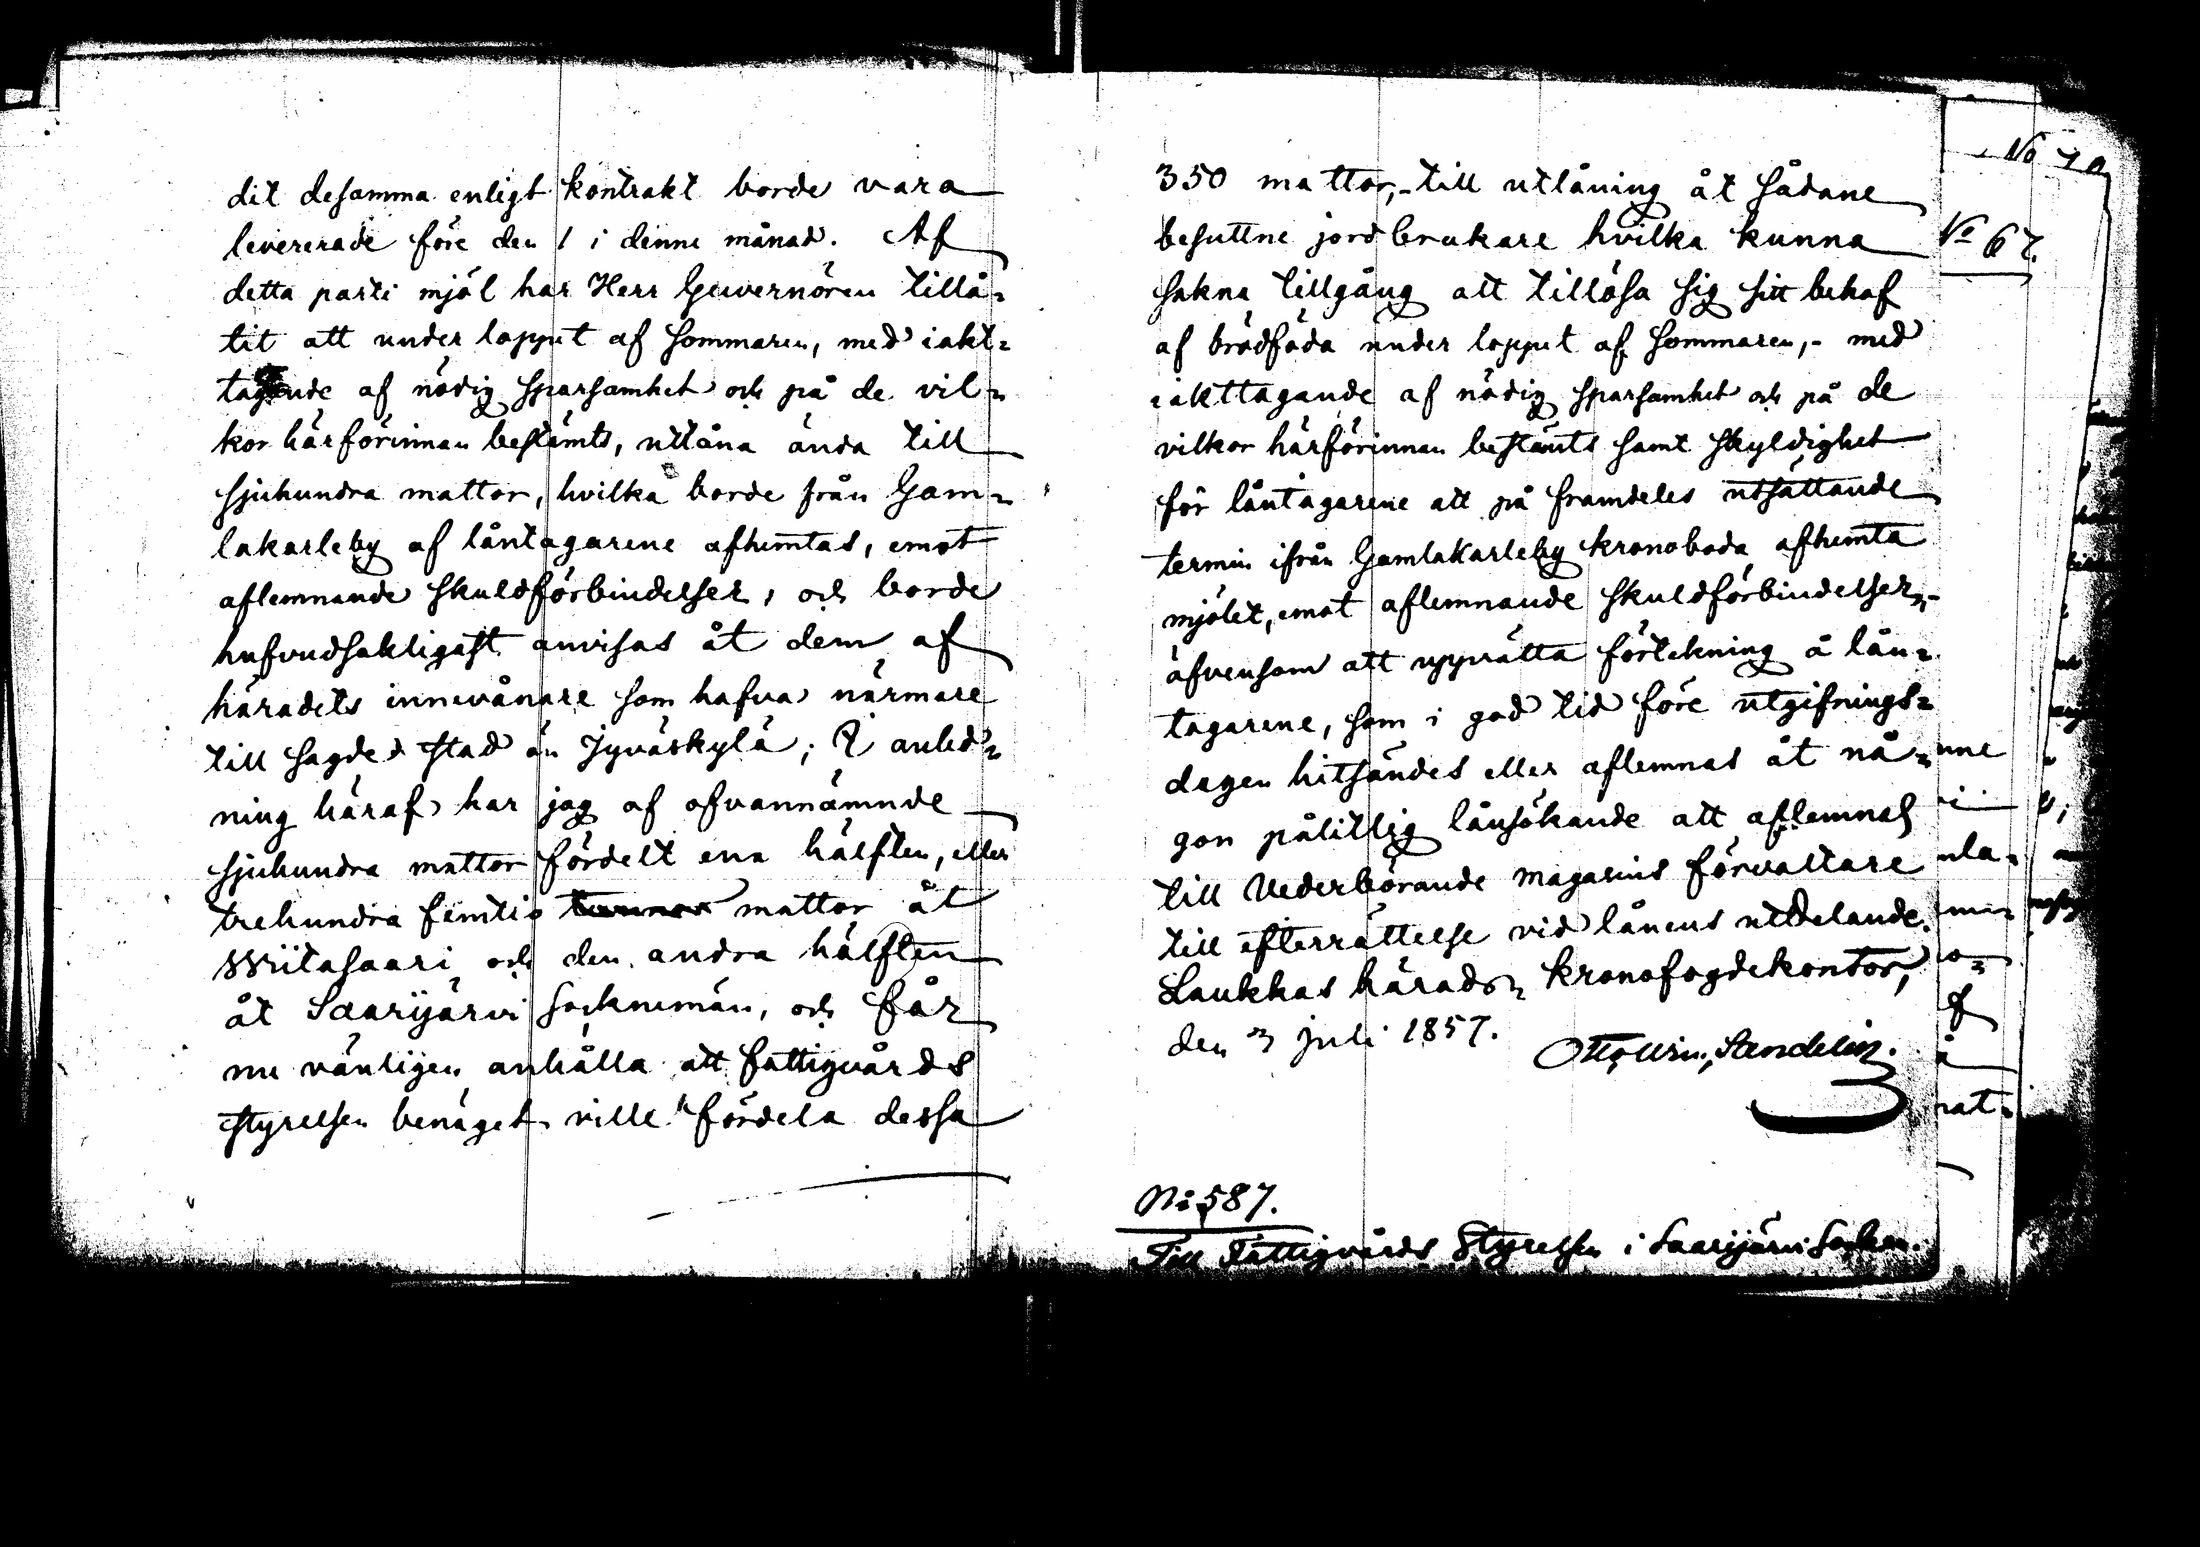 dit desamma enligt kontrakt borde vara
levererade före den 1 i denne månad. Af
detta parti mjöl har Herr Guvernören tillå=
tit att under loppet af sommaren, med iakt=
tagande af nödig sparsamhet och på de vil=
kor härförinnan bestämts, utlåna ända till
sjuhundra mattor, hvilka borde från Gam=
lakarleby af låntagarene afhemtas, emot
aflemnande skuldförbindelser, och borde
hufvudsakligast anvisas åt dem af
häradets innevånare som hafva närmare
till sagde stad än Jyväskylä; I anled=
ning häraf har jag af ofvannämnde
sjuhundra mattor fördelt ena hälften, eller
trehundra femtio tunnor mattor åt
Wiitasaari och den andra hälften
åt Saarijärvi socknemän, och får
nu vänligen anhålla att fattigvårds
styrelsen benäget ville fördela dessa
350 mattor,- till utlåning åt sådane
besuttne jordbrukare hvilka kunna
sakna tillgång att tillösa sig sitt behof
af brödföda under loppet af sommaren,- med
iakttagande af nödig sparsamhet och på de
vilkor härförinnan bestämts samt skyldighet
för låntagarene att på framdeles utsättande
termin ifrån Gamlakarleby kronoboda afhemta
mjölet, emot aflemnande skuldförbindelser,-
äfvensom att upprätta förtekning å lån=
tagarene, som i god tid före utgifnings=
dagen hitsändes eller aflemnas åt nå=
gon pålitlig lånsökande att aflemnas
till Vederbörande magasins förvaltare
till efterrättelse vid lånens utdelande.
Laukkas härads= kronofogdekontor,
den 3 juli 1857.
Otto Wm. Sandelin.
No 587.
Till Fattigvårds Styrelsen i Saarijärvi Socken.
No 67.
nne